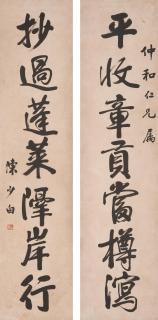 仲和仁兄属
平收章貢當樽瀉
抄過蓬萊擇岸行
陳少白